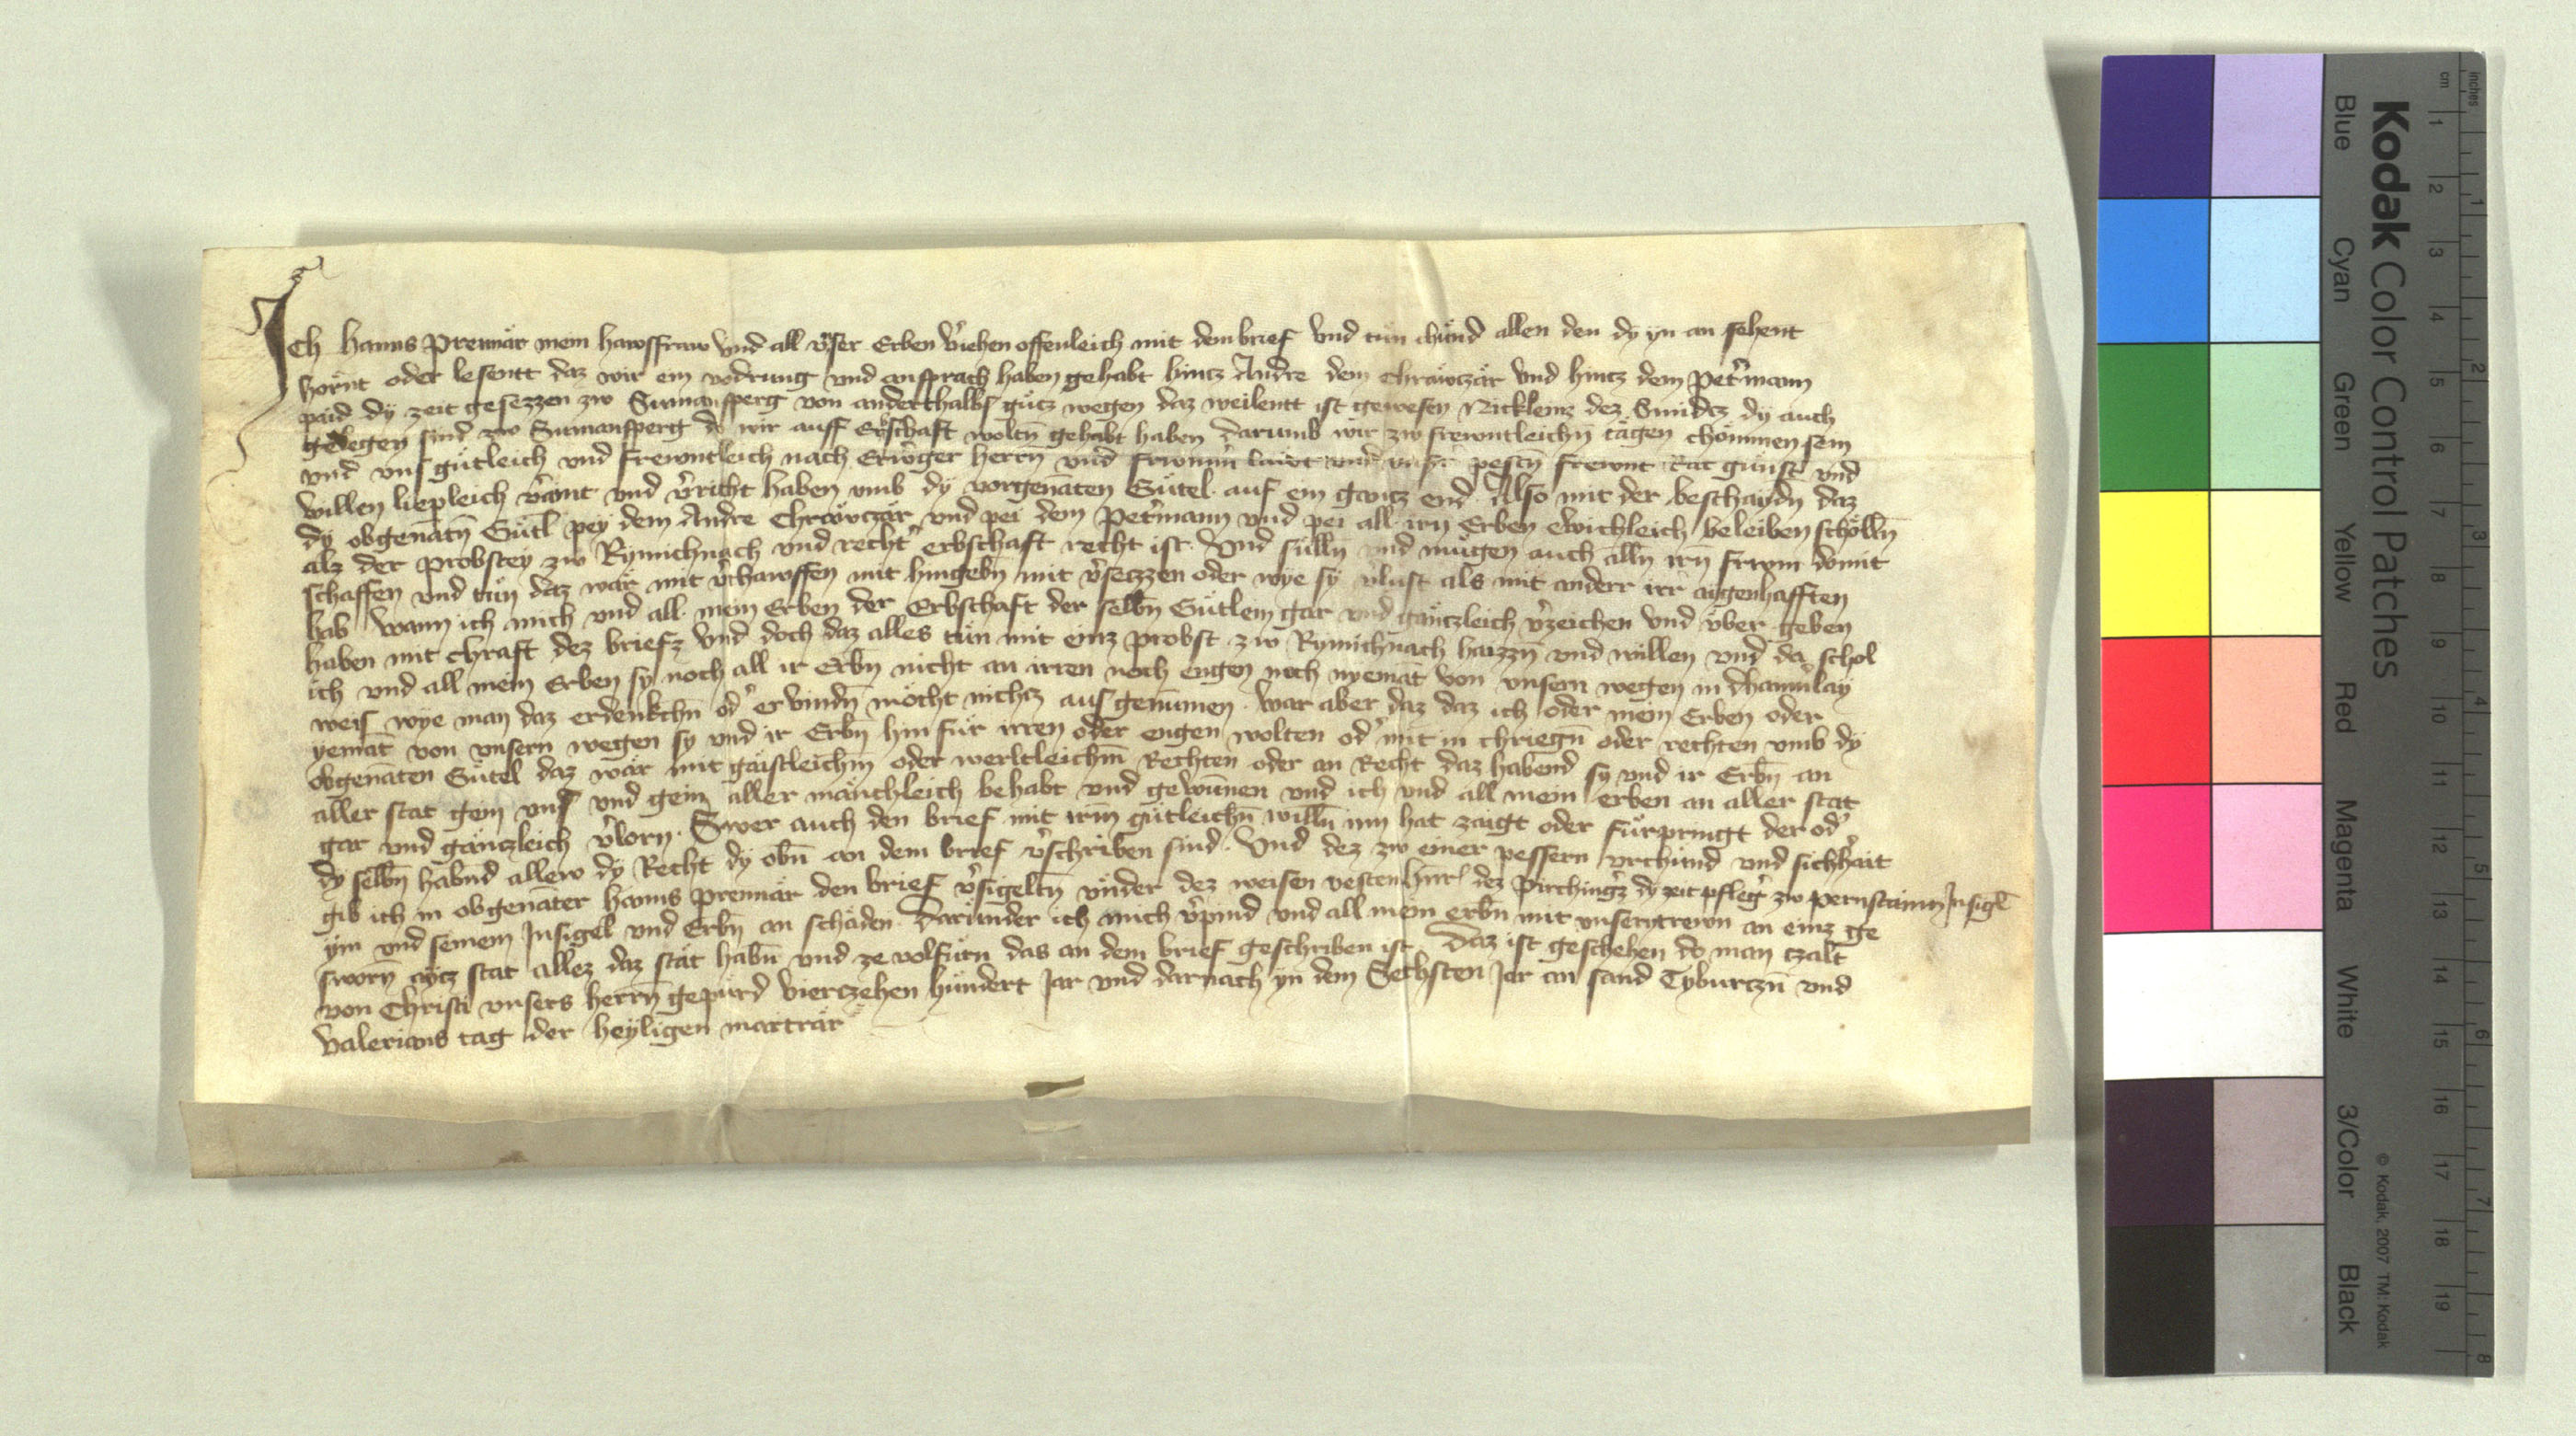 Ich Hanns Prennär mein hawsfraw Vnd all vnser Erben v'iehen offenleich mit dem brief Vnd tün chünd allen den dy yn an sehent
hörnt oder lesentt daz wir ein vodrung vnd ansprach haben gehabt hincz Andre dem Chräwczär Vnd hincz dem Pet'mann
paid dy zeit gesezzen zw Surmansperg von anderthalbs gücz wegen daz weilentt ist gewesen Nicklenz dez Smidcz dy auch
gelegen sind zw Surmansperg do wir auff Erbschaft woltn̄ gehabt haben darumb wir zw frewntleichn̄ tägen chömmen sein
vnd vns gütleich vnd frewntleich nach Erwger herrn̄ vnd frwmm' lawt vnd vns' pestn̄ frewnt Rat günst vnd
willen liepleich v'aint vnd v'richt haben vmb dy vorgenāten Gütel auf ein gancz end Also mit der beschaydn̄ daz
dy obgenātn̄ Gütl pey dem Andre Chräwczär vnd pei dem Pet'mann vnd pei all irn̄ Erben ewichleich beleiben schölln̄
alz der probstey zw Rymichnach vnd recht' erbschaft recht ist. Vnd sülln̄ vnd mügen auch alln̄ irn̄ frwm domit
schaffen vnd tün daz wär mit v'chawffen mit hingebn̄ mit v'seczzen oder wye sy v'lust als mit anderr irr aigenhafften
hab Wann ich mich vnd all mein Erben der Erbschaft der selbn̄ Gütlein gar vnd gänczleich v'zeichen vnd vber geben
haben mit chraft dez briefz Vnd doch daz alles tün mit einz probst zw Rymichnach haizzn̄ vnd willen vnd da schol
ich vnd all mein Erben sy noch all ir Erbn̄ nicht an irren noch engen noch nyemāt von vnsern wegen in chainlay
weis wye man daz erdenkchn̄ od' ervindn̄ möcht nichcz ausgenumen. War aber daz daz ich oder mein Erben oder
yemāt von vnsern wegen sy vnd ir Erbn̄ hin für irren oder engen wolten od' mit in chriegn̄ oder rechten vmb dy
obgenāten Gütel daz wär mit gäistleichm̄ oder werltleichm̄ Rechten oder an Recht daz habend sy vnd ir Erbn̄ an
aller stat gein vns vnd gein aller mänchleich behabt vnd gewūnen vnd ich vnd all mein erben an aller stat
gar vnd gänczleich v'lorn. Swer auch den brief mit irm̄ gütleichn̄ willn̄ inn hat zaigt oder fürpringt der od'
dy selbn̄ habnd allew dy Recht dy obn̄ an dem brief v'schriben sind. Vnd dez zw einer pessern vrchund vnd sichh'ait
gib ich in obgenāter hanns prennär den brief v'sigeltn̄ vnder dez weisen vesten hnr' dez Pirching'z dy zeit pfleg' zw pernstainn Insigl
ym vnd seinem Insigel vnd Erbn̄ an schäden. Darunder ich mich v'pind vnd all mein erbn̄ mit vnsern trewn an einz ge
sworn̄ aycz stat allez daz stät habn̄ vnd ze volfürn das an dem brief geschriben ist. Daz ist geschehen do man czalt
von Christi vnsers herrn̄ gepürd Vierczehen hündert Jar vnd darnach yn dem Sechsten Jar an sand Tyburczn̄ vnd
Valerians tag der heyligen marträr
Kodak Color Control Patches
Blue Cyan Green Yellow Red Magenta White 3/Color Black
© Kodak, 2007 TM: Kodak
cm 1 2 3 4 5 6 7 8 9 10 11 12 13 14 15 16 17 18 19
inches 1 2 3 4 5 6 7 8